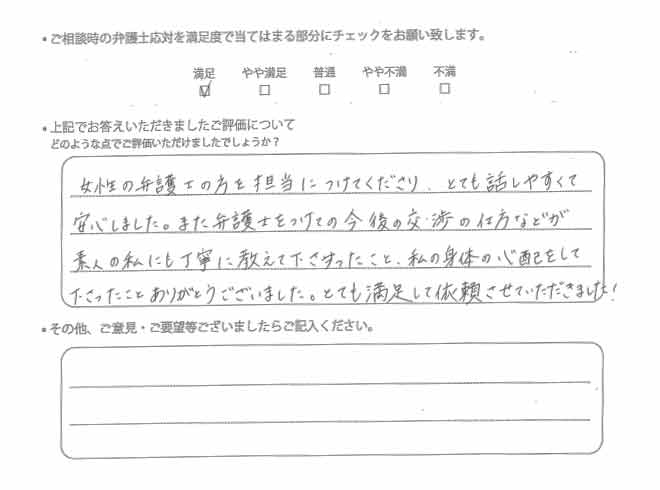 ・ご相談時の弁護士応対を満足度で当てはまる部分にチェックをお願い致します。
満足 やや満足 普通 やや不満 不満
☑ □ □ □ □
・上記でお答えいただきましたご評価について
どのような点でご評価いただけましたでしょうか？
女性の弁護士の方を担当につけてくださり、とても話しやすくて
安心しました。また弁護士をつけての今後の交渉の仕方などが
素人の私にも丁寧に教えて下さすったこと、私の身体の心配をして
下さったことありがとうございました。とても満足して依頼させていただきました！
・その他、ご意見・ご要望等ございましたらご記入ください。